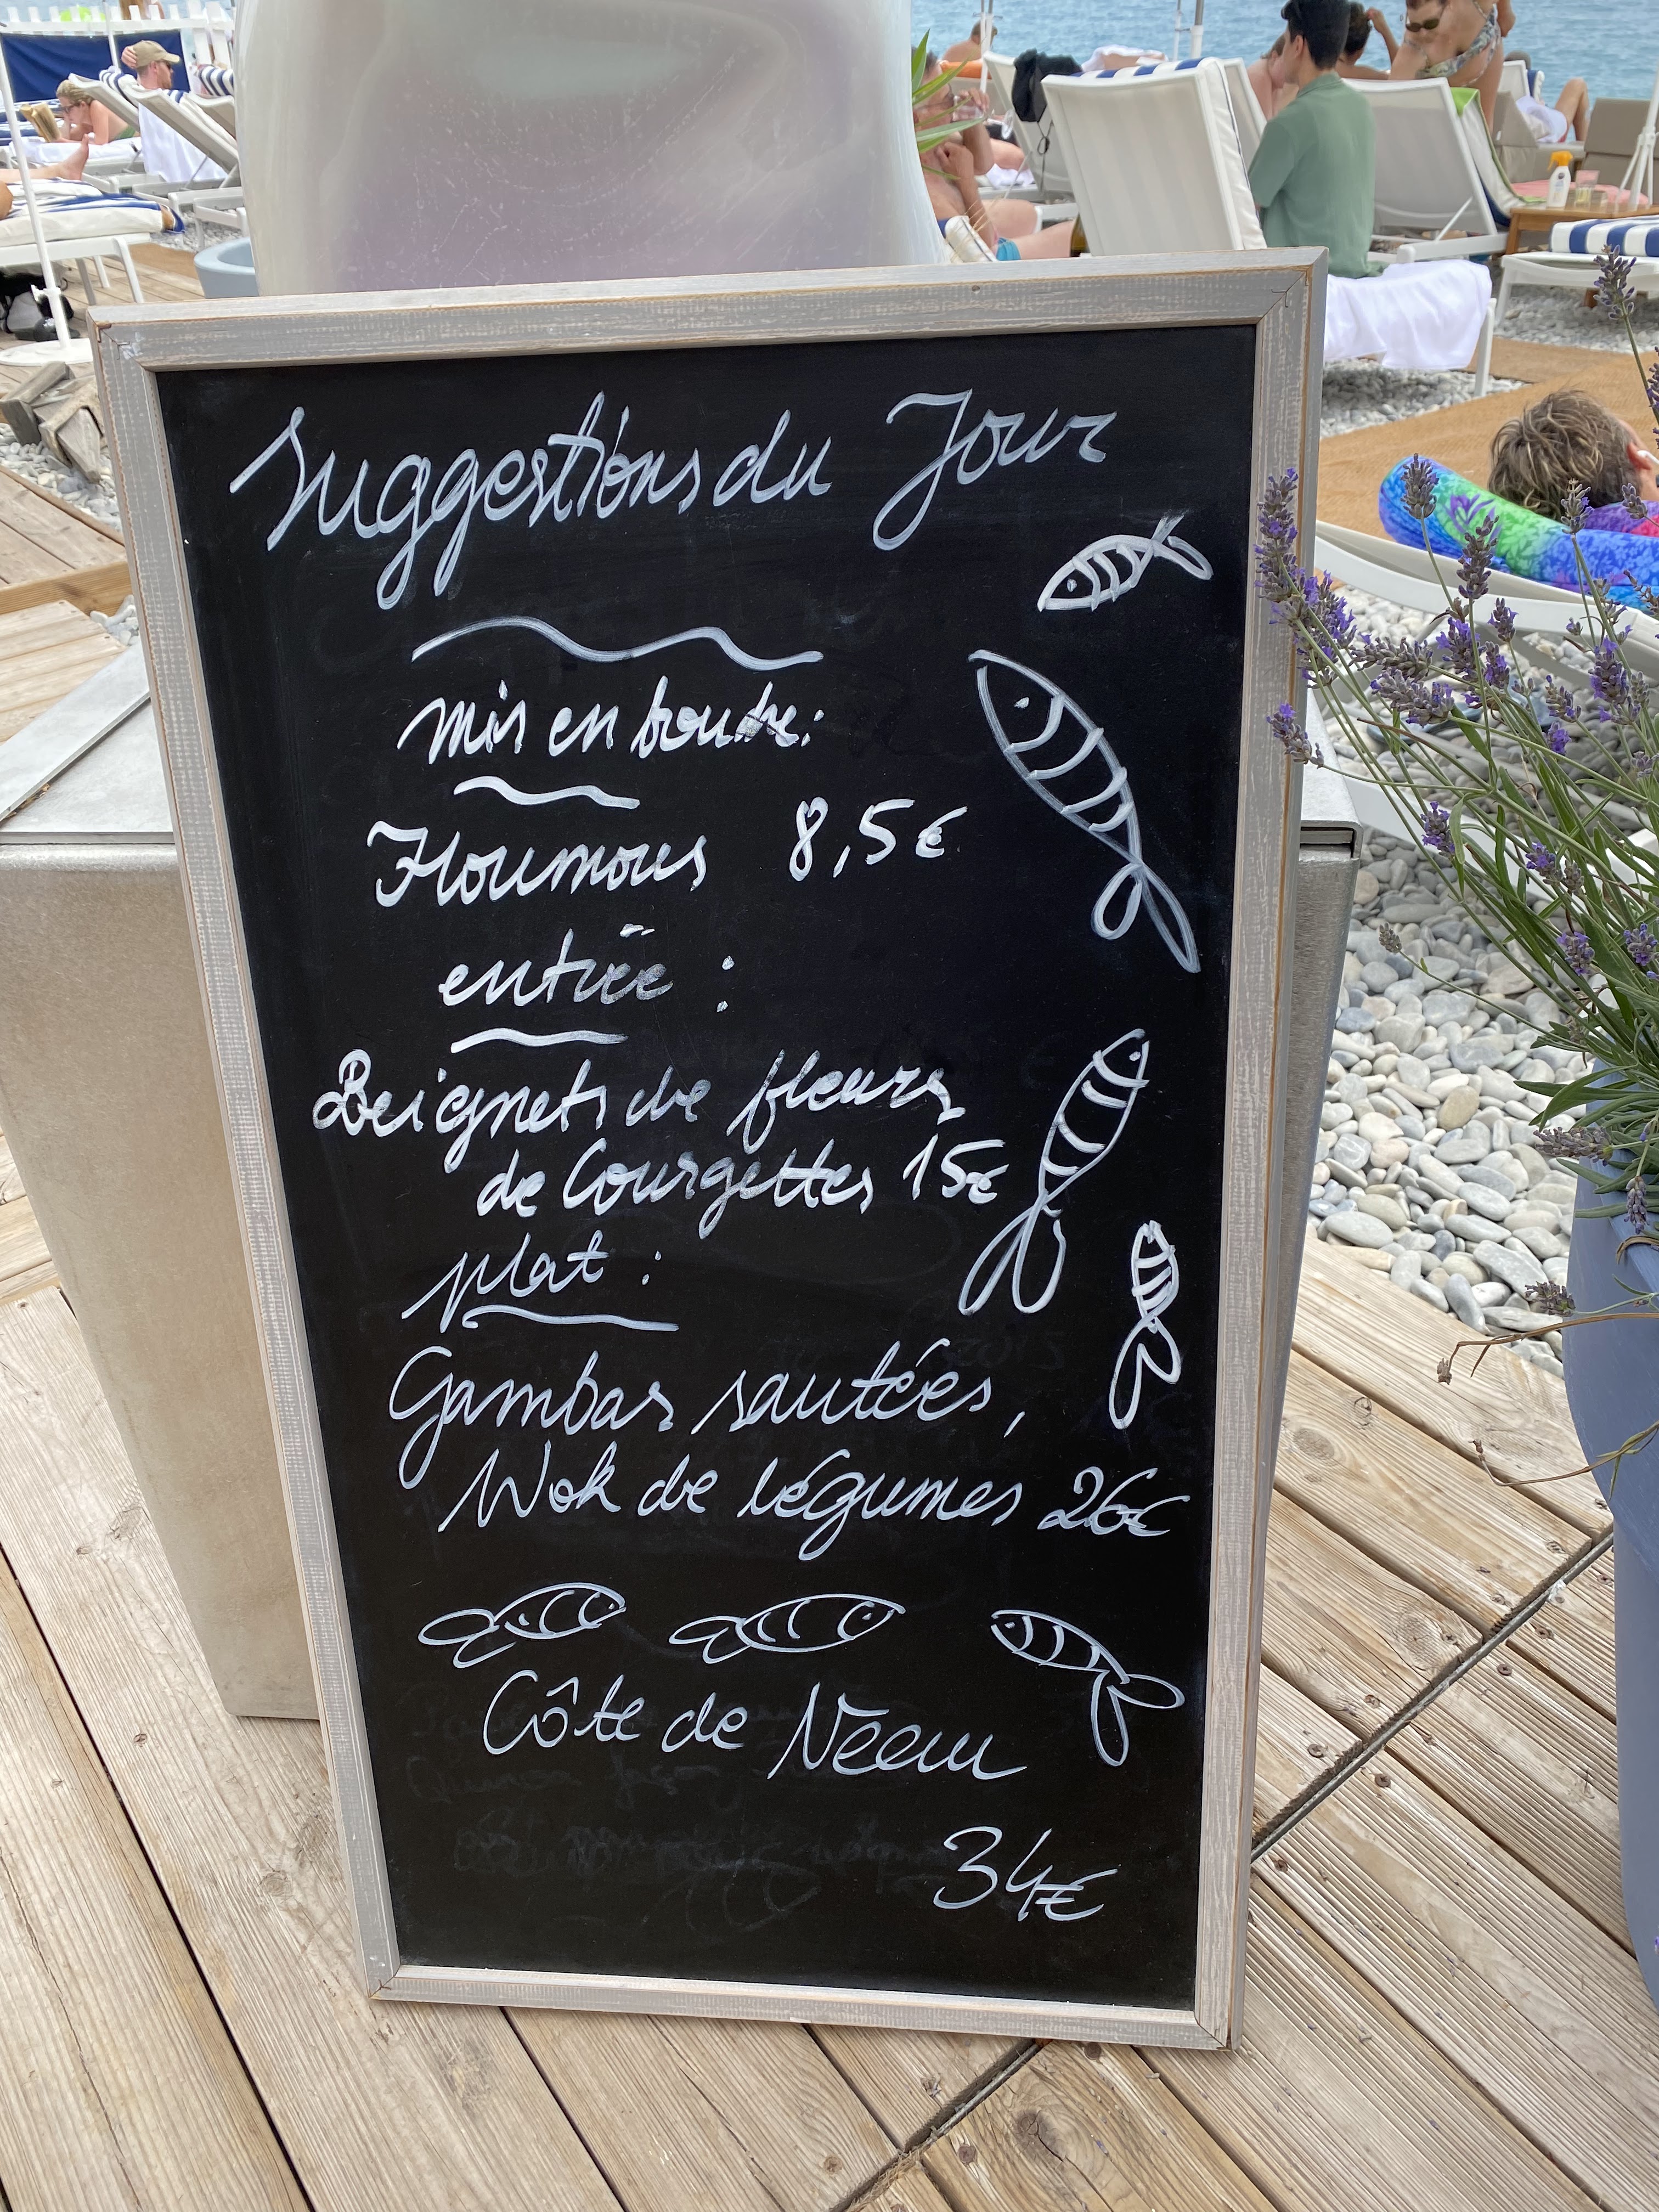 Suggestions du Jour
mis en bouche:
Houmous 8,5€
entrée :
Beignets de fleurs
de Courgettes 15€
plat :
Gambas sautées,
Wok de légumes 26€
Côte de Veau
34€